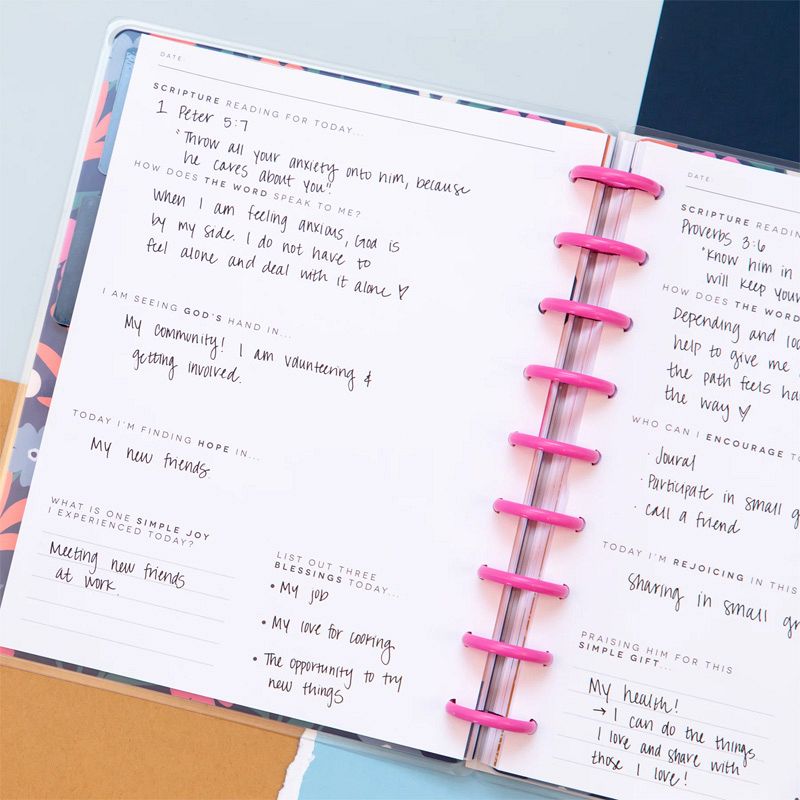 DATE:
SCRIPTURE READING FOR TODAY...
1 Peter 5:7
"Throw all your anxiety onto him, because
he cares about you".
HOW DOES THE WORD SPEAK TO ME?
When I am feeling anxious, God is
by my side. I do not have to
feel alone and deal with it alone
I AM SEEING GOD'S HAND IN...
My community! I am vounteering &
getting involved.
TODAY I'M FINDING HOPE IN...
My new friends.
WHAT IS ONE SIMPLE JOY
I EXPERIENCED TODAY?
Meeting new friends
at work.
LIST OUT THREE
BLESSINGS TODAY...
• My job
• My love for cooking
• The opportunity to try
new things
DATE
SCRIPTURE READIN
Proverbs 3:6
"Know him in
will keep your
HOW DOES THE WORD
Depending and loo
help to give me
the path feels ha
the way
WHO CAN I ENCOURAGE TO
· Joural
· Participate in small g
· call a friend
TODAY I'M REJOICING IN THIS
Sharing in small gr
PRAISING HIM FOR THIS
SIMPLE GIFT...
My health!
→ I can do the things
I love and share with
those I love!